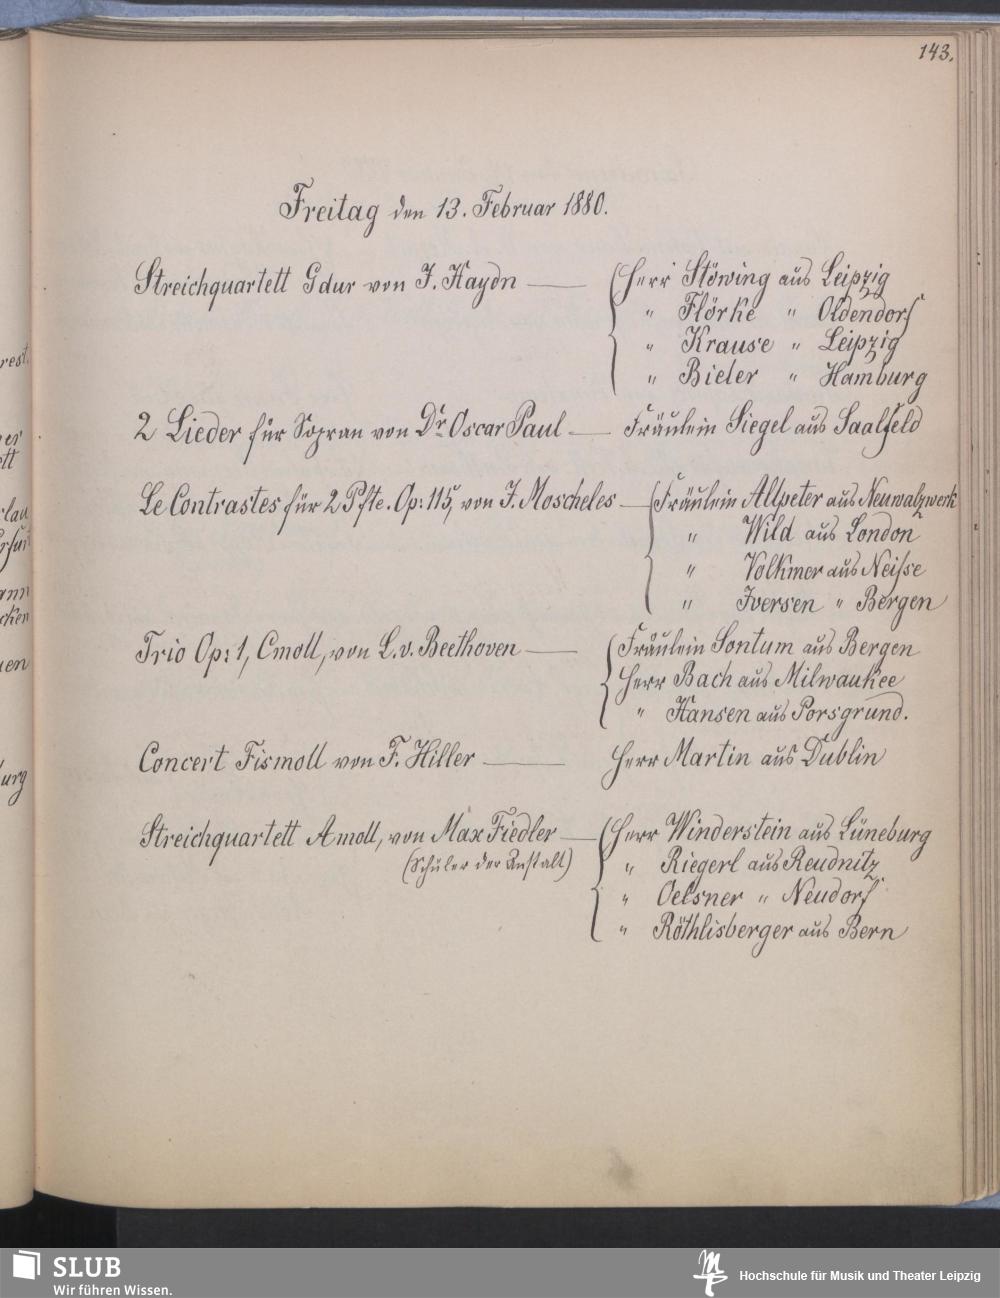 143.
Freitag den 13. Februar 1880.
Streichquartett Gdur von J. Haydn — Herr Stöwing aus Leipzig
" Flörke " Oldendorf
" Krause " Leipzig
" Bieler " Hamburg
2 Lieder für Sopran von Dr. Oscar Paul — Fräulein Siegel aus Saalfeld
Le Contrastes für 2 Pfte. Op: 115, von J. Moscheles — Fräulein Allpeter aus Neuwalzwerk
" Wild aus London
" Volkmer aus Neisse
" Iversen " Bergen
Trio Op: 1, Cmoll, von L. v. Beethoven — Fräulein Sontum aus Bergen
Herr Bach aus Milwaukee
" Hansen aus Porsgrund.
Concert Fismoll von F. Hiller — Herr Martin aus Dublin
Streichquartett Amoll, von Max Fiedler — Herr Winderstein aus Lüneburg
(Schüler der Anstalt) " Riegerl aus Reudnitz
" Oelsner " Neudorf
" Röthlisberger aus Bern
SLUB
Wir führen Wissen.
Hochschule für Musik und Theater Leipzig